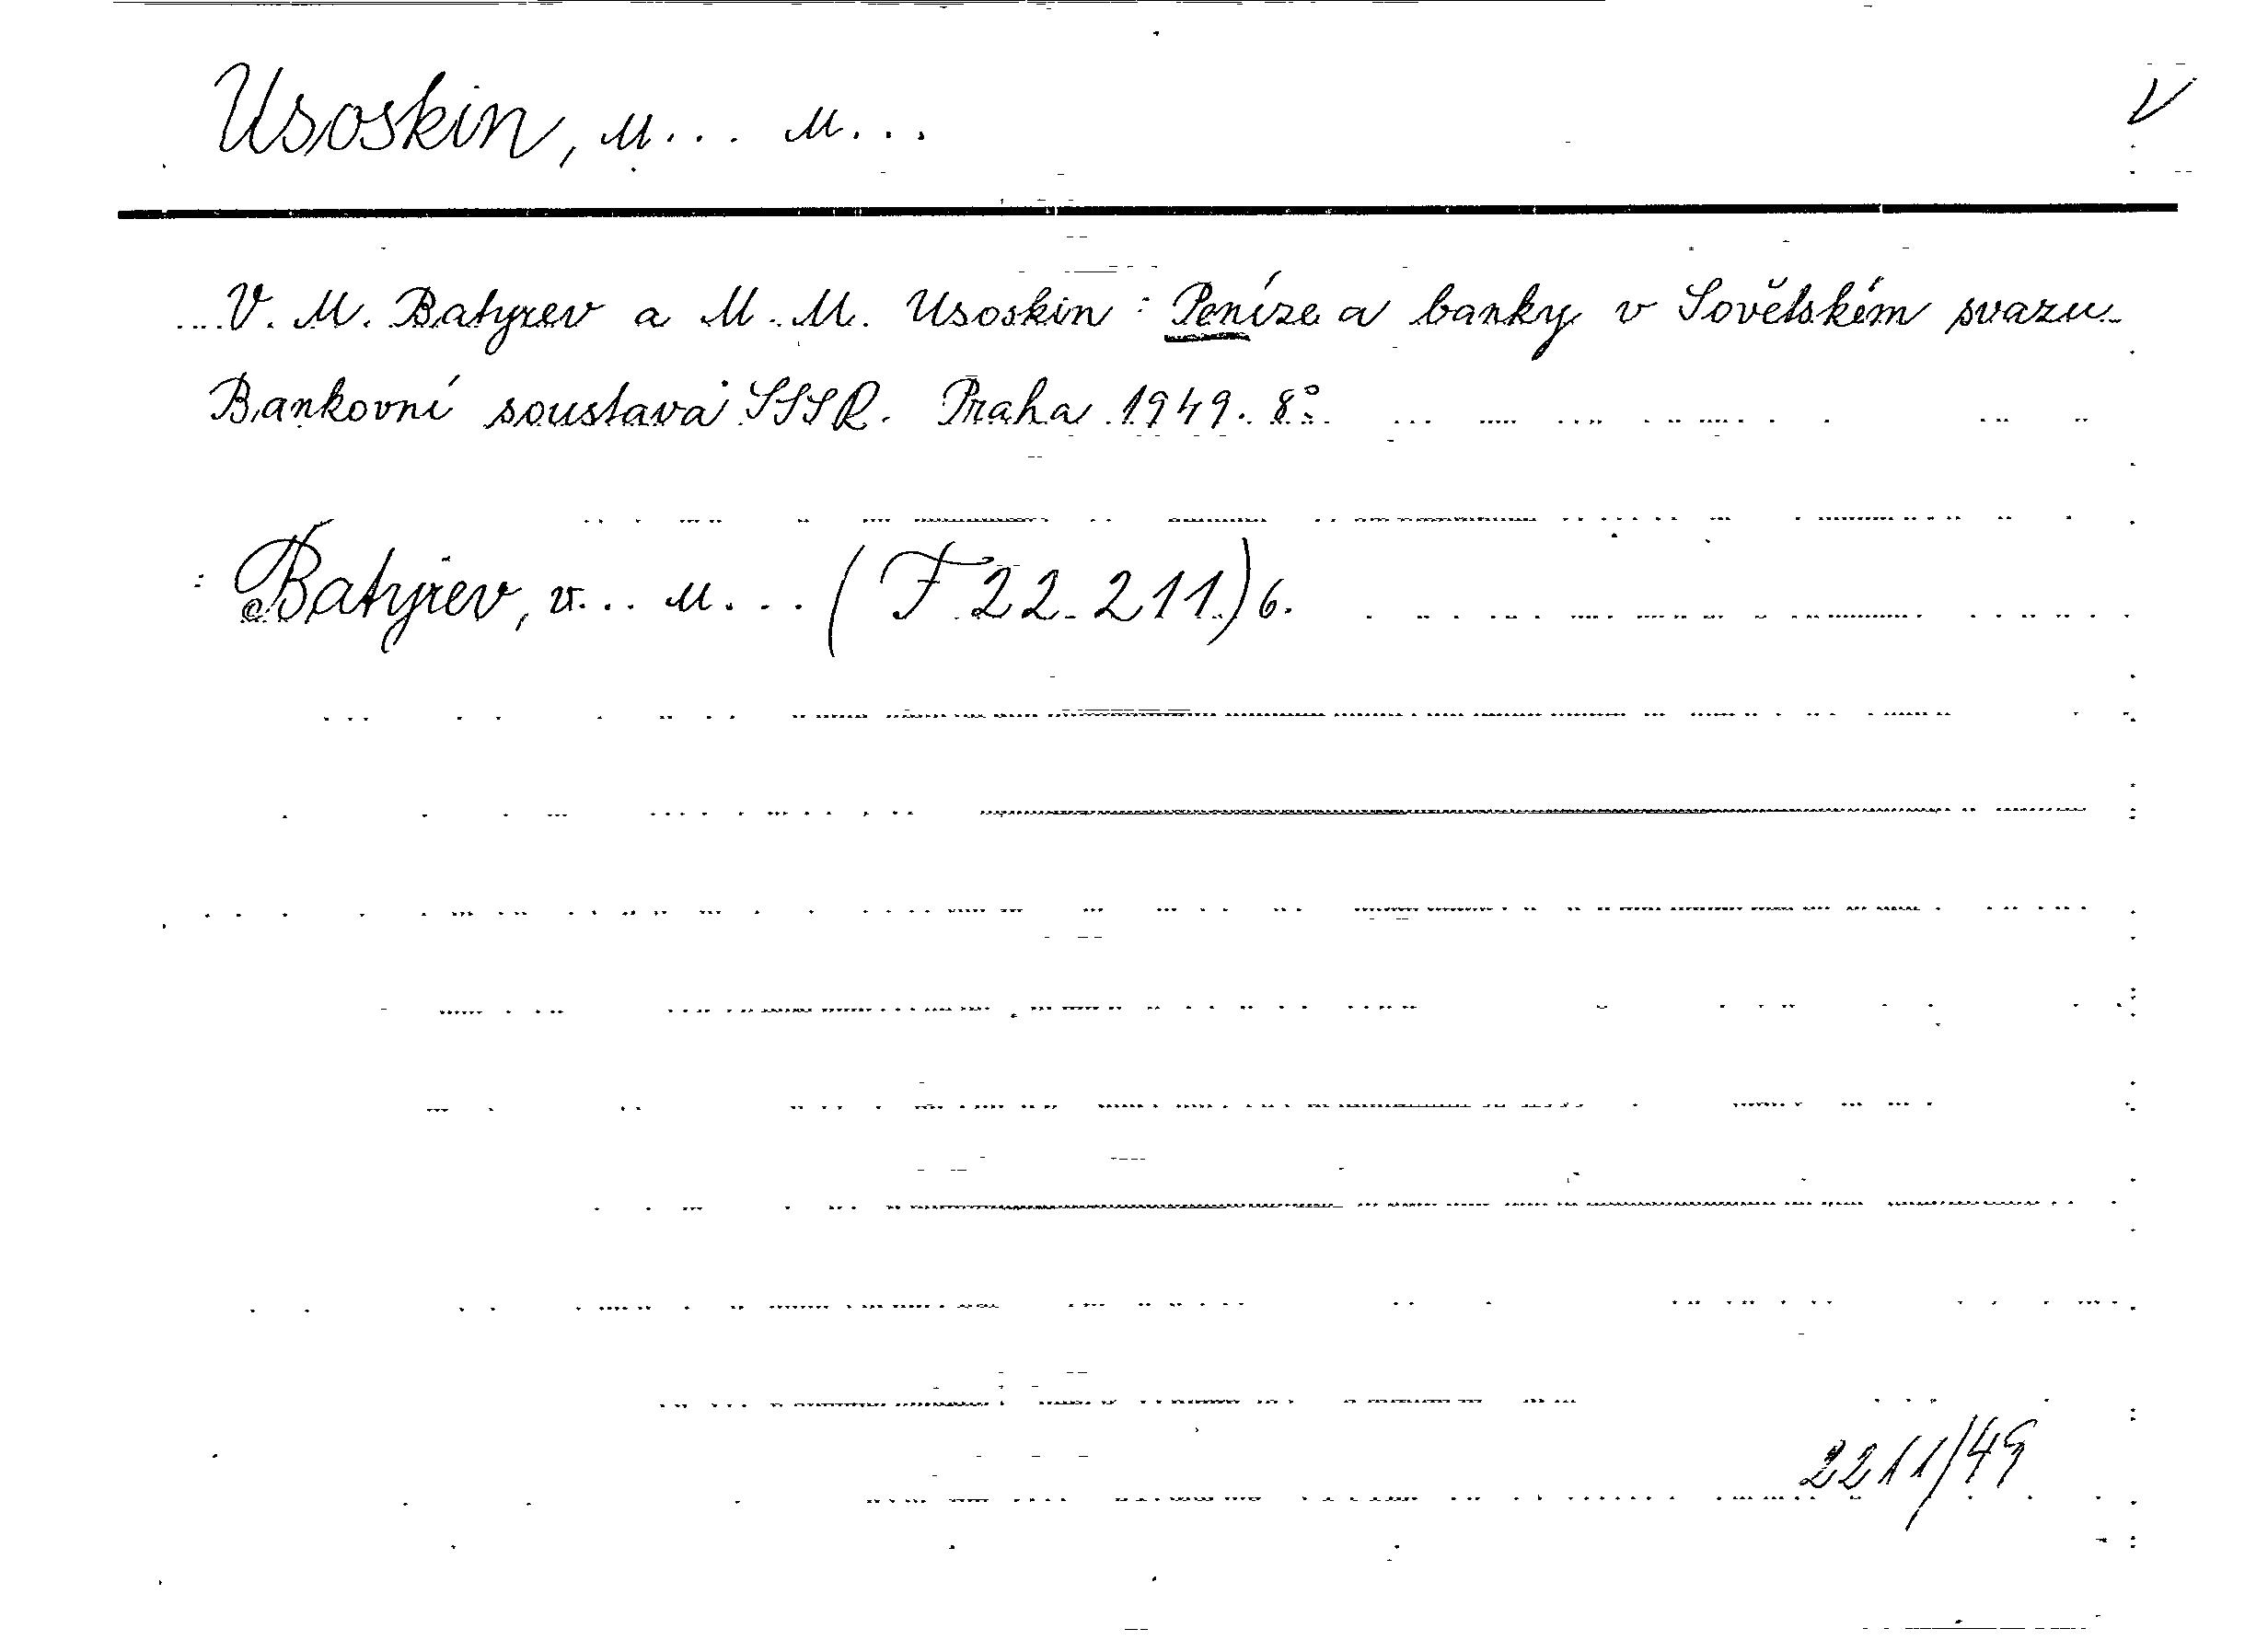 Usoskin, M... M... V
V. M. Batyrev a M. M. Usoskin: Peníze a banky v Sovětském svazu.
Bankovní soustava SSSR. Praha 1949. 8°.
: Batyrev, V... M... (F 22.211) 6.
2211/49